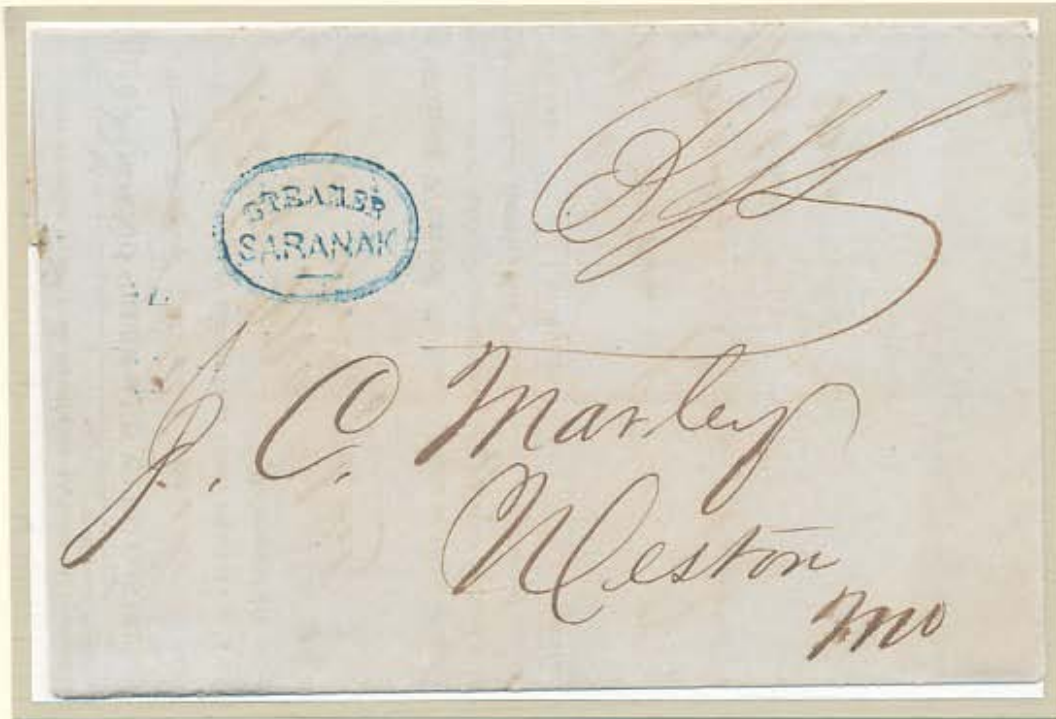 STEAMER
SARANAK
J. C. Manley
Weston
Mo